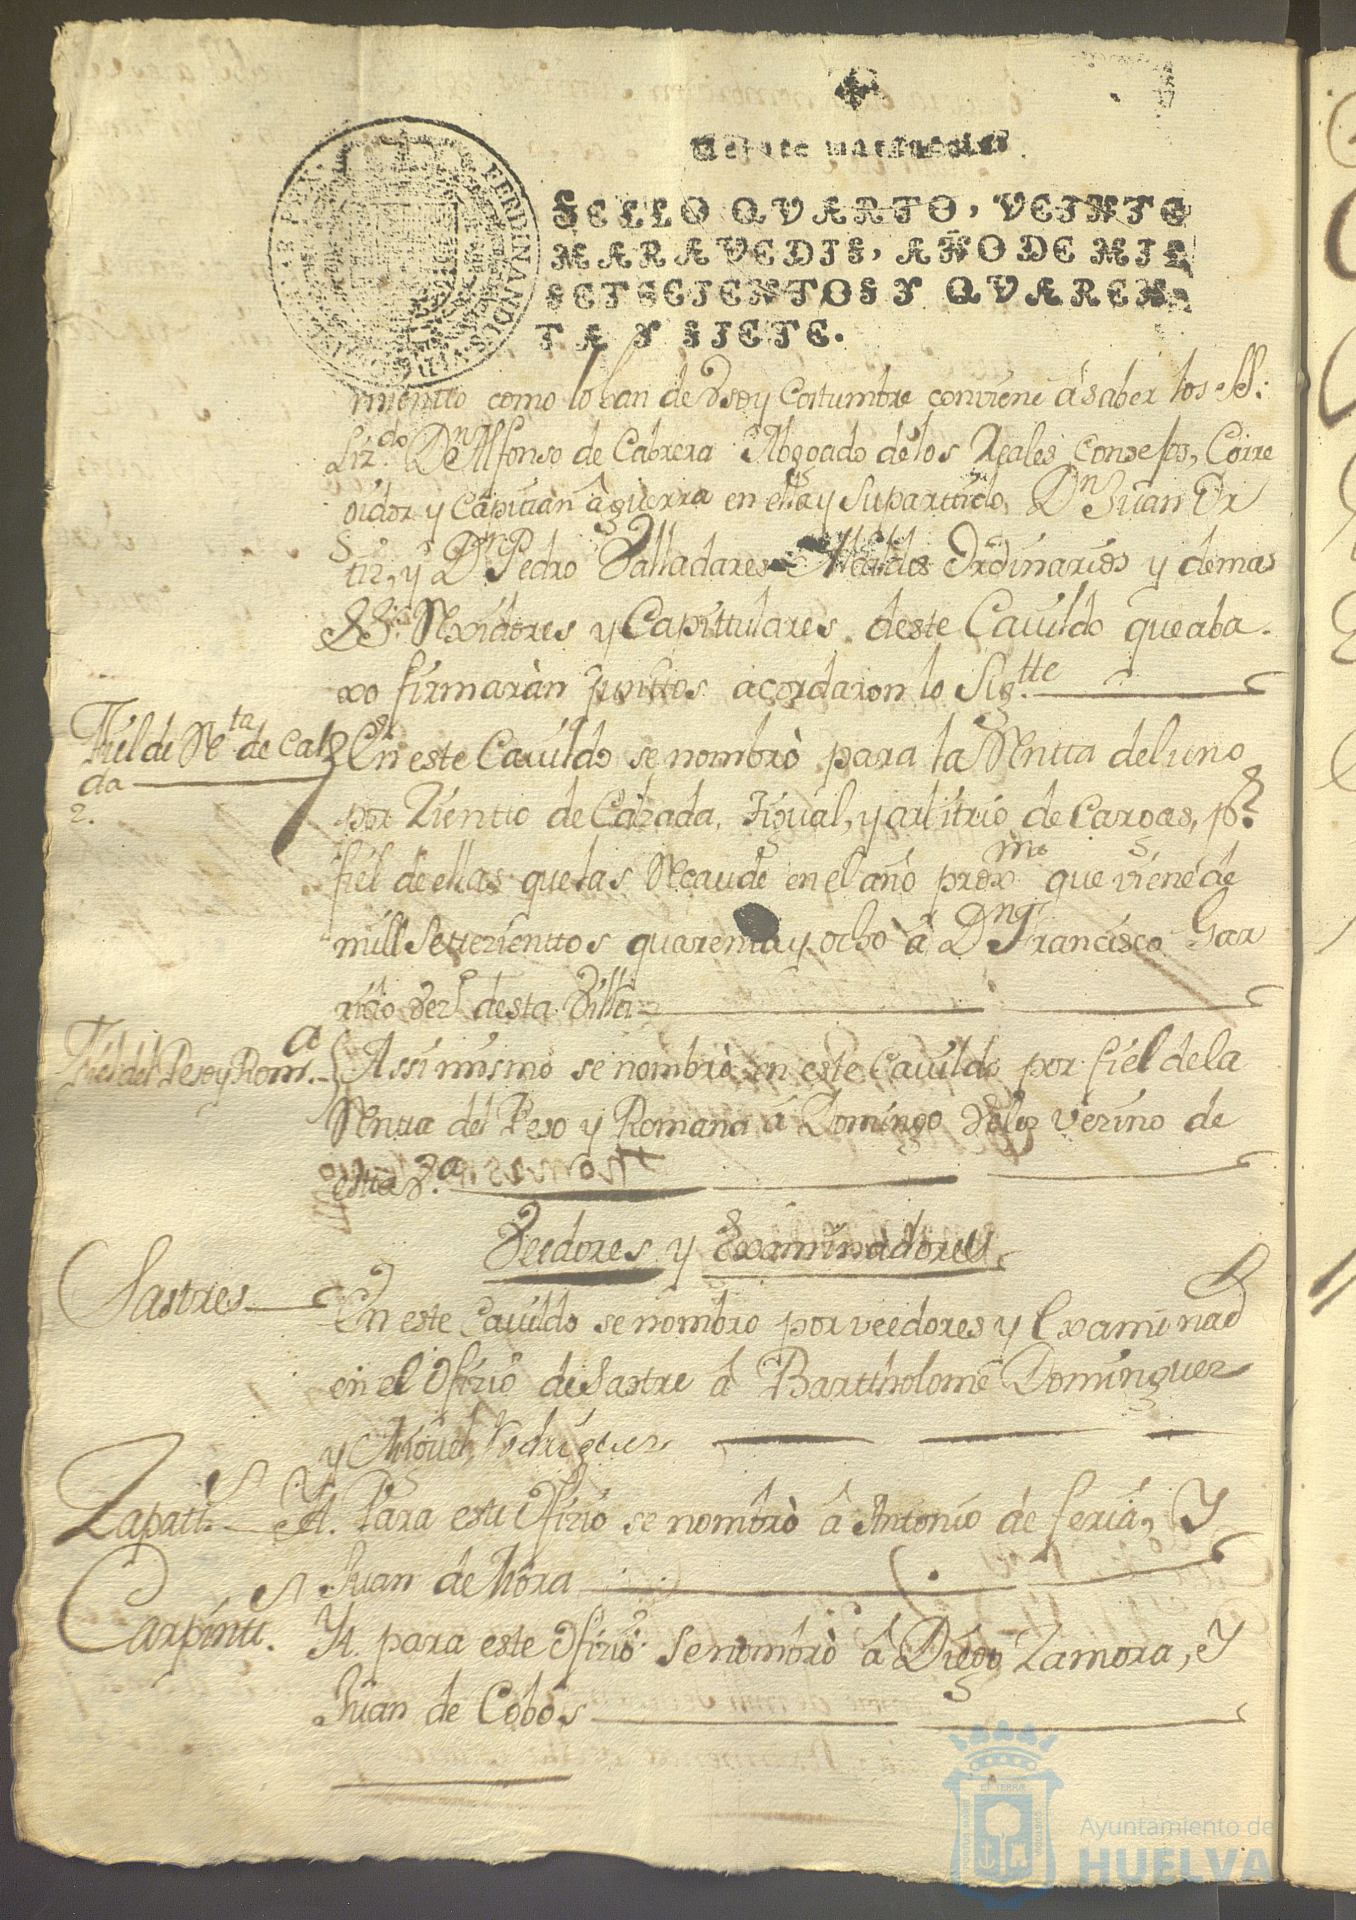 Veinte maravedis
SELLO QVARTO, VEINTE
MARAVEDIS, AÑO DE MIL
SETECIENTOS Y QVAREN-
TA Y SIETE.
FERDINANDUS
mientto como lo han de Vso y Costumbre conviene â saber los SS.
Liz.do Dn Alfonso de Cabrera Abogado de los Reales Consejos, Corre
gidor y Capitan â guerra en ella y su parttido, Dn Juan Or
tiz, y Dn Pedro Valladares Alcaldes Ordinarios y demas
SS.s Rexidores y Capittulares deste Cavildo que aba
xo firmaràn Junttos acordaron lo Sig.tte
Fiel de Rta de Calza
da
2.
En este Cavildo se nombrò para la Rentta del uno
por Zientto de Calzada, Yigual, y arbitrio de Cargas, pr
fiel de ellas que las Recaude en el año prox.mo que viene de
mill Settezienttos quarentta y ocho â Dn Francisco Gar
rido Vez.o desta Villa
Fiel del Peso y Rom.a
Assi mismo se nombrò en este Cavildo por fiel de la
Rentta del Peso y Romana â Domingo Velez Vezino de
estta V.a
Veedores y Examinadores
Sastres
En este Cavildo se nombro por veedores y Examinad
en el Ofizio de Sastre â Barttholome Dominguez
y Miguel Rodriguez
Zapatt.s
Yt. Para estte Ofizio se nombrò â Antonio de feria, Y
Juan de Mora
Carpintt.s
Yt. para este Ofizio Se nombrò â Diego Zamora, Y
Juan de Cobos
Ayuntamiento de
HUELVA